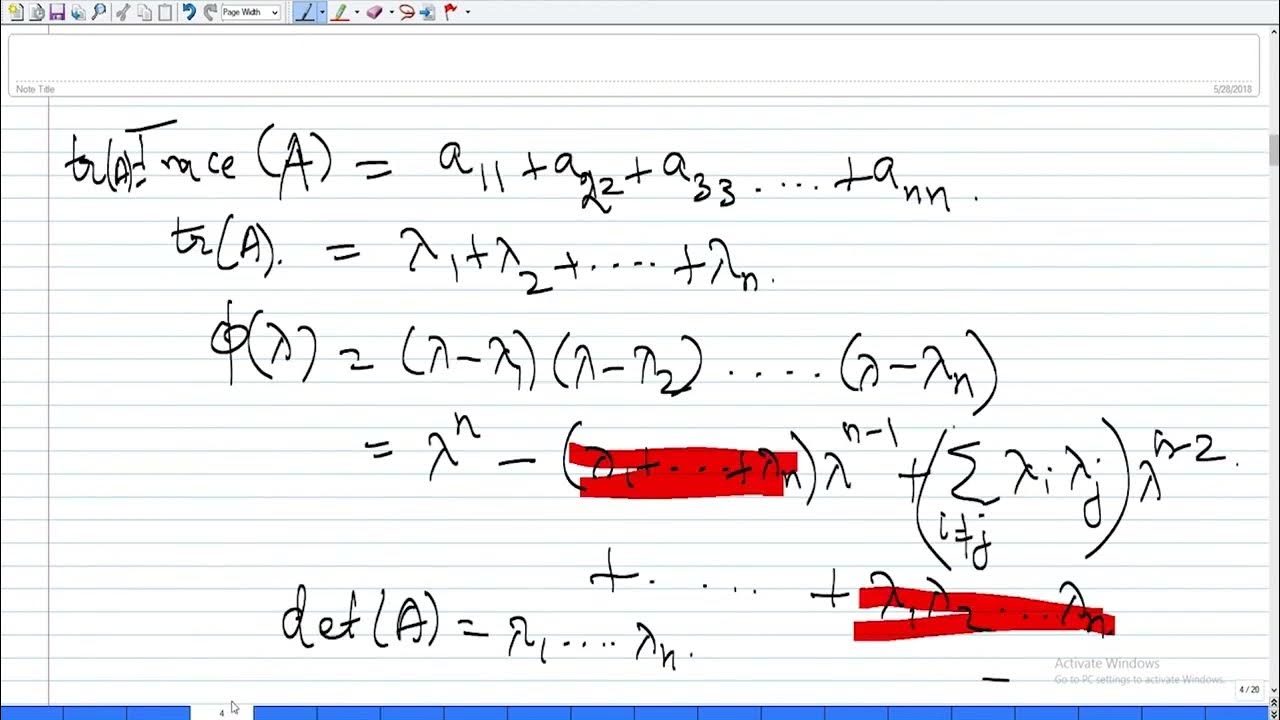 Page Width
Note Title
5/28/2018
tr(A): Trace (A) = a₁₁ + a₂₂ + a₃₃ .... + aₙₙ.
tr(A). = λ₁ + λ₂ + ..... + λₙ.
ϕ(λ) = (λ − λ₁) (λ − λ₂) ..... (λ − λₙ)
= λⁿ − (λ₁ + ... + λₙ) λⁿ⁻¹ + (∑_{i≠j} λᵢ λⱼ) λⁿ⁻².
+ . ... + λ₁ λ₂ ... λₙ
det(A) = λ₁ .... λₙ.
Activate Windows
Go to PC settings to activate Windows.
4 / 20
4